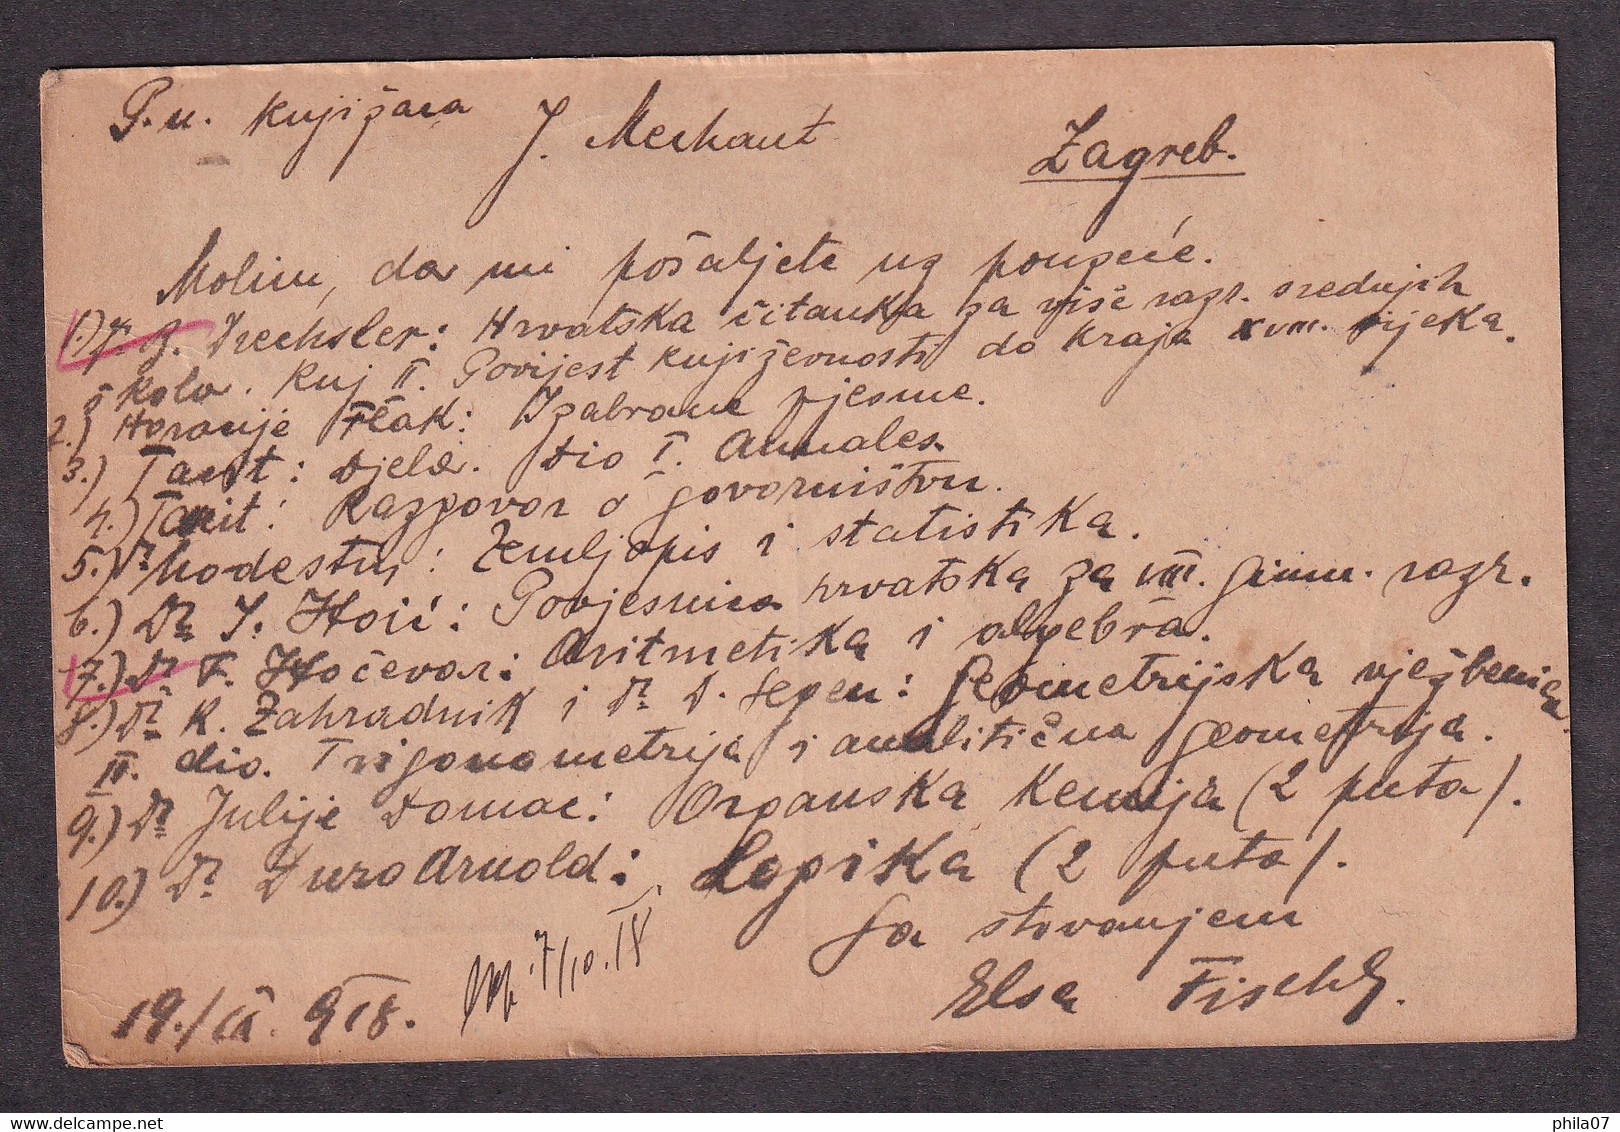 P.n. knjižara J. Merhaut Zagreb.
Molim, da mi pošaljete uz pouzeće.
1.) Drechsler: Hrvatska čitanka za više razr. srednjih
škola. Knj II. Povijest književnosti do kraja XVIII. vijeka.
2.) Horacije Flak: Izabrane pjesme.
3.) Tacit: Djela. Dio I. Annales.
4.) Tacit: Razgovor o govorništvu.
5.) Dr Modestin: Zemljopis i statistika.
6.) Dr. I. Hoić: Povjesnica hrvatska za VIII. gimn. razr.
7.) Dr F. Hočevar: Aritmetika i algebra.
8.) Dr. K. Zahradnik i Dr. D. Segen: Geometrijska vježbenica
II. dio. Trigonometrija i analitična geometrija.
9.) Dr Julije Domac: Organska Kemija (2 puta).
10.) Dr Đuro Arnold: Logika (2 puta).
Sa štovanjem
Elsa Fischl.
7/10.18
19./IX. 918.
delcampe.net
phila07